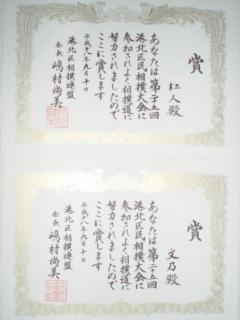 賞
杜人殿
あなたは第二十五回
港北区民相撲大会に
参加されよく相撲道に
努力されましたので
ここに賞します
平成十八年九月十日
港北区相撲連盟
会長 嶋村尚美
賞
文乃殿
あなたは第二十五回
港北区民相撲大会に
参加されよく相撲道に
努力されましたので
ここに賞します
平成十八年九月十日
港北区相撲連盟
会長 嶋村尚美